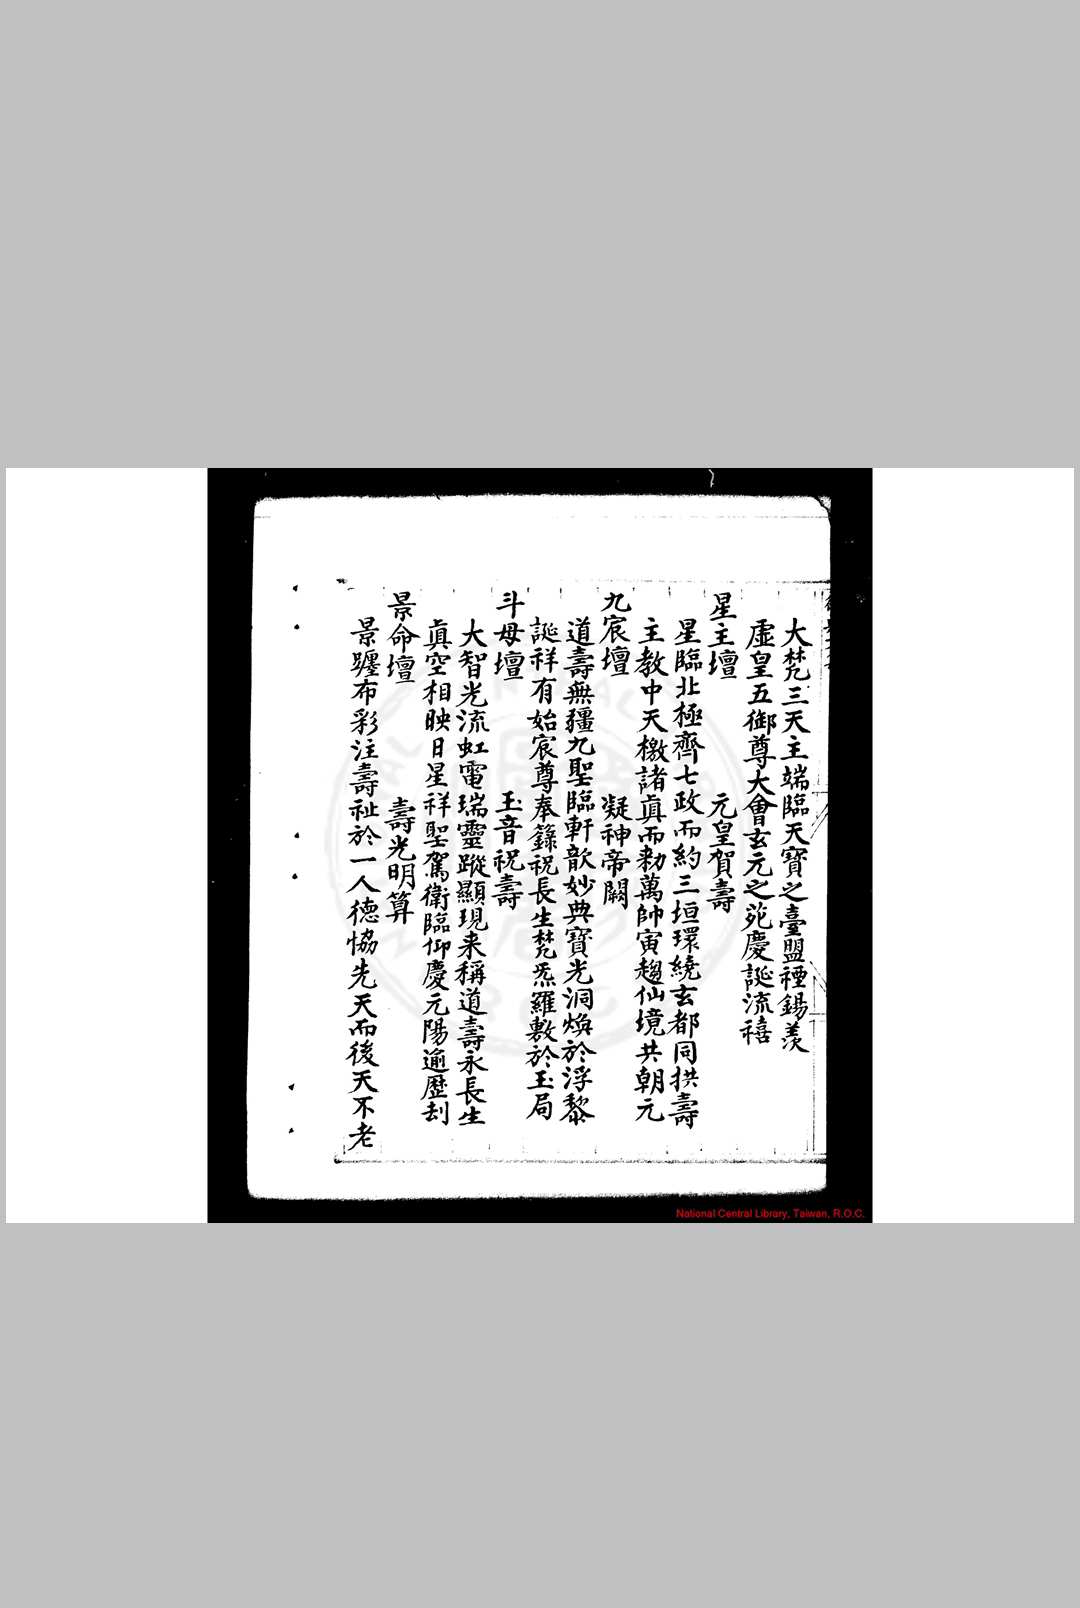 大梵三天主端臨天寶之臺盟禋錫羨
虛皇五御尊大會玄元之苑慶誕流禧
星主壇 元皇賀壽
星臨北極齊七政而約三垣環繞玄都同拱壽
主教中天檄諸眞而勑萬帥寅趨仙境共朝元
九宸壇 凝神帝闕
道壽無疆九聖臨軒歆妙典寶光洞煥於浮黎
誕祥有始宸尊奉籙祝長生梵炁羅敷於玉局
斗母壇 玉音祝壽
大智光流虹電瑞靈蹤顯現来稱道壽永長生
眞空相映日星祥聖駕衛臨仰慶元陽逾歷刦
景命壇 壽光明算
景躔布彩注壽祉於一人德恊先天而後天不老
National Central Library, Taiwan, R.O.C.